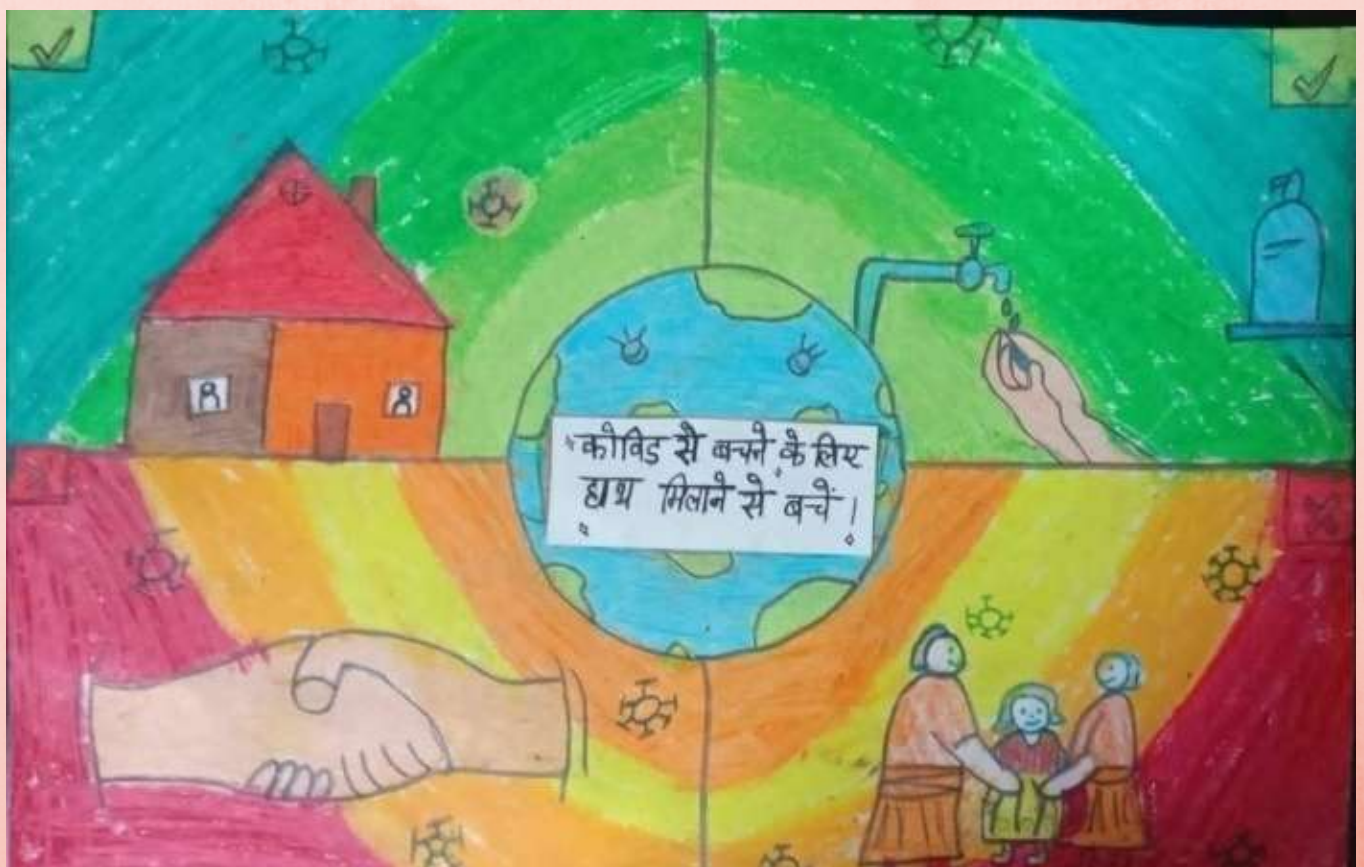 "कोविड से बचने के लिए
हाथ मिलाने से बचें।